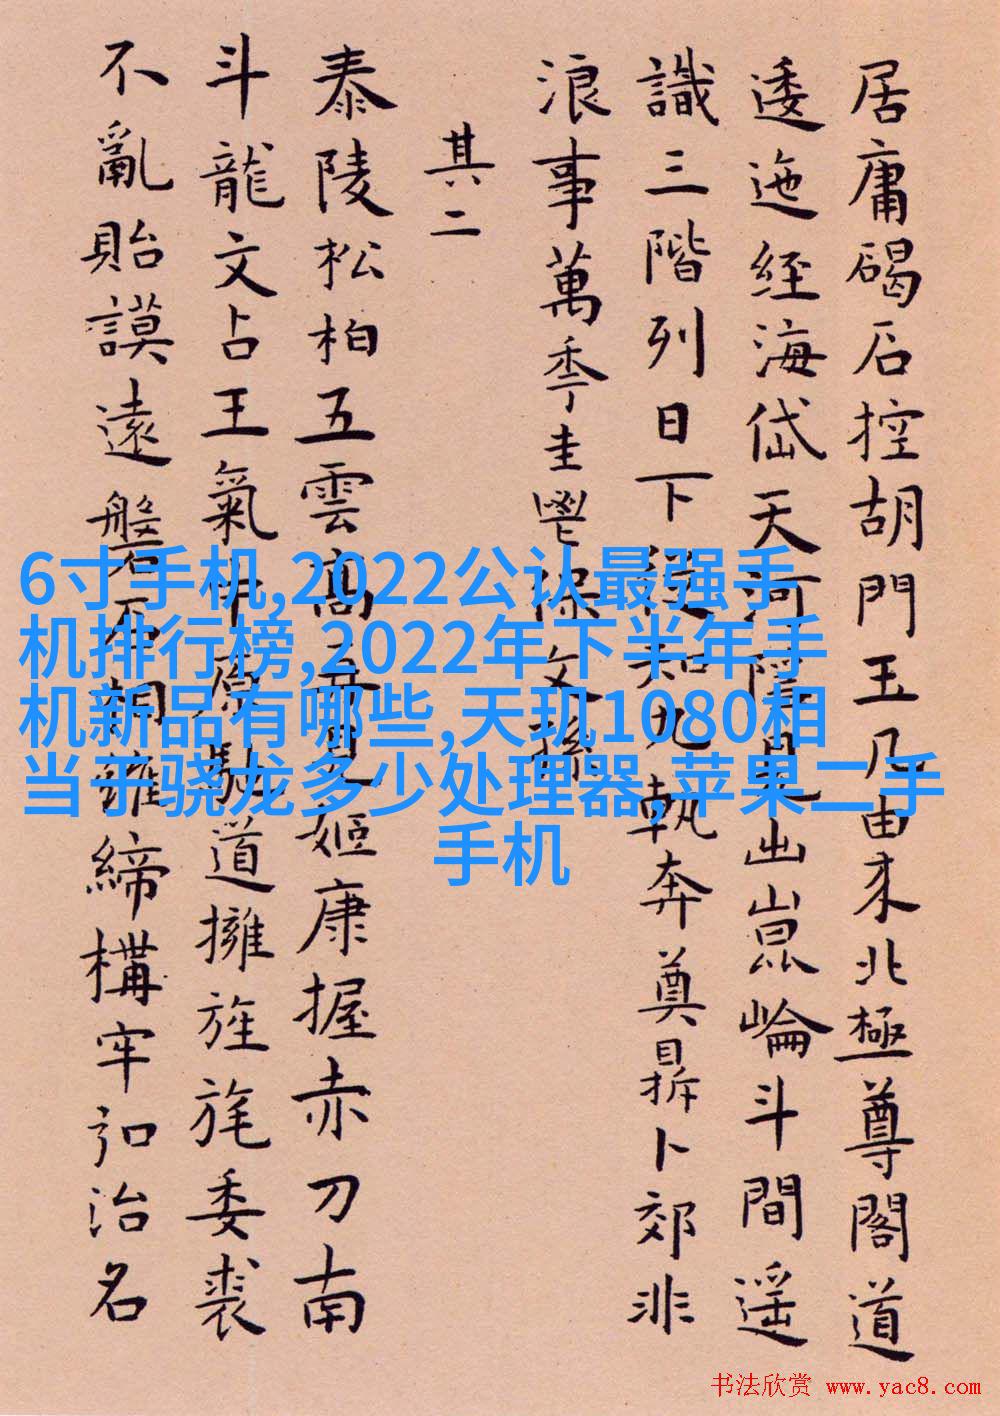 居庸碣石控胡門王凡由来北極尊閣道
逶迤經海岱天河隱見出崑崙斗間遥
識三階列日下知九執奔奠鼎卜郊非
浪事萬季圭鬯保文孫
其二
泰陵松柏五雲髙見姬康握赤刀南
斗龍文占王氣中原馳道擁旌旄委裘
不亂貽謨遠磐石相維締構牢扣治名
6寸手机,2022公认最强手
机排行榜,2022年下半年手
机新品有哪些,天玑1080相
当于骁龙多少处理器,苹果二手
手机
书法欣赏 www.yac8.com